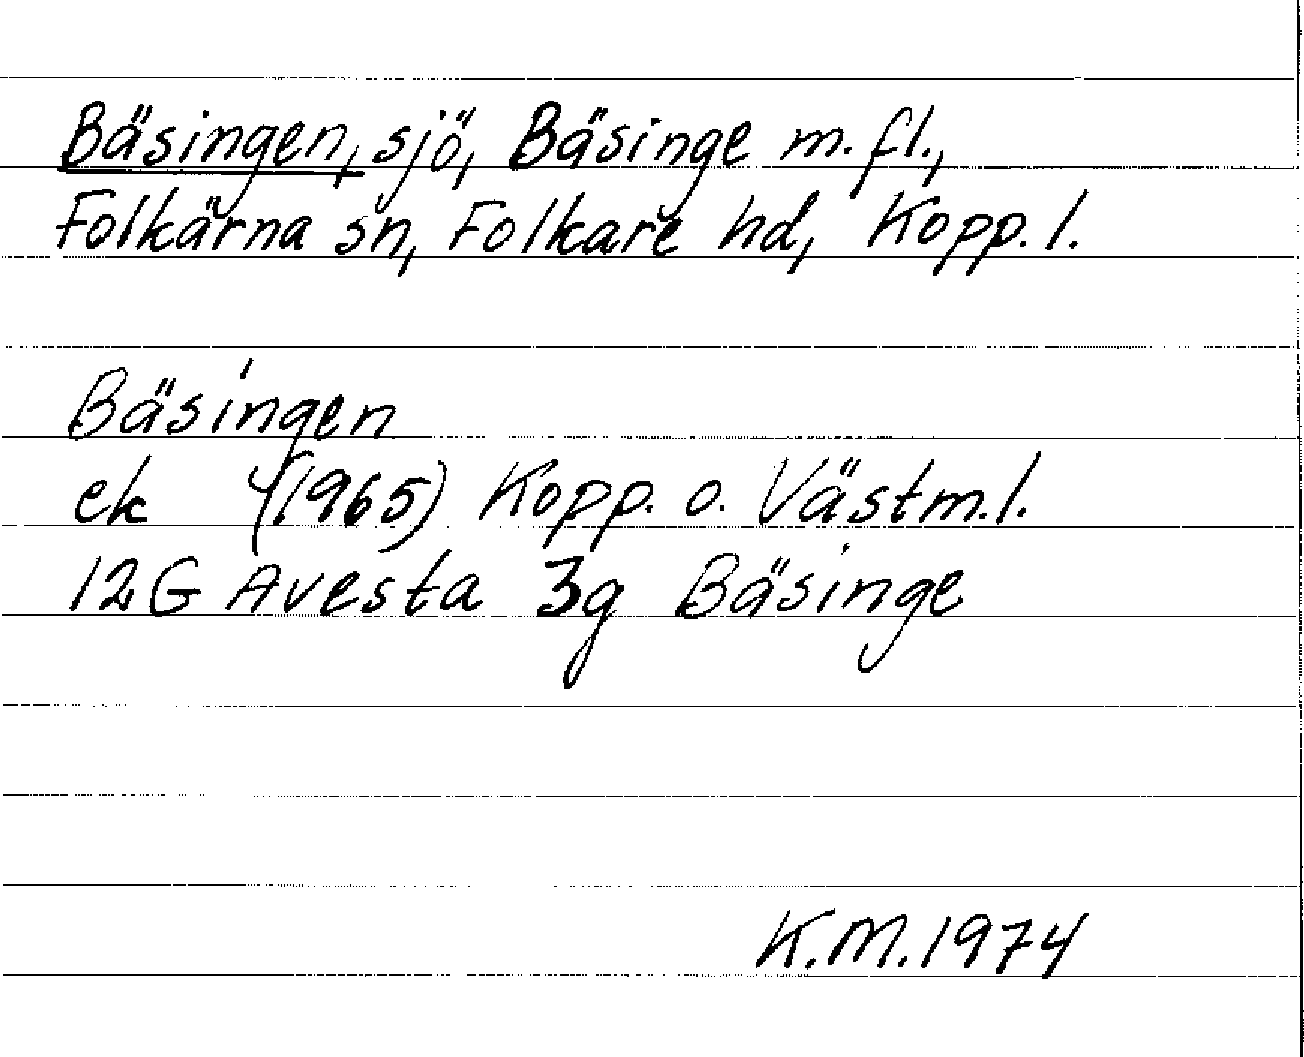 Bäsingen, sjö, Bäsinge m.fl.,
Folkärna sn, Folkare hd, Kopp. l.
Bäsingen
ek (1965) Kopp. o. Västm.l.
12G Avesta 3g Bäsinge
K.M.1974